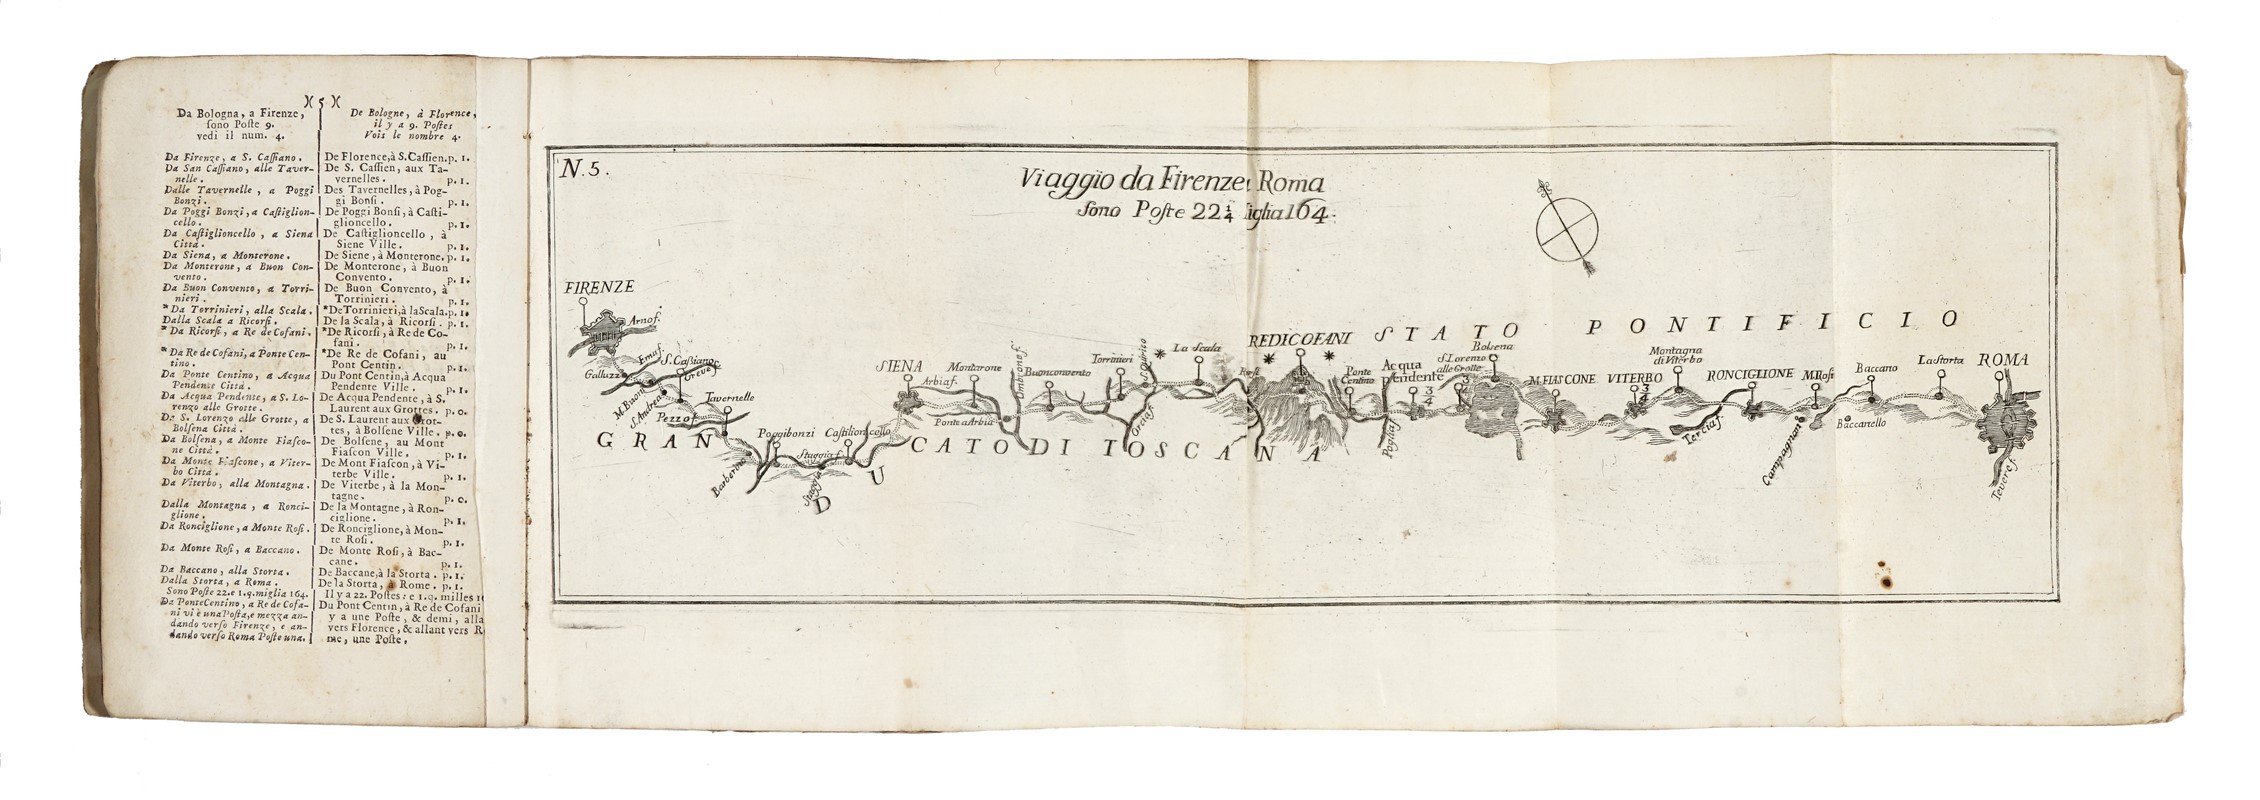 )( 5 )(
Da Bologna, a Firenze,
ſono Poſte 9.
vedi il num. 4.
Da Firenze, a S. Caſſiano.
Da San Caſſiano, alle Taver-
nelle.
Dalle Tavernelle, a Poggi
Bonzi.
Da Poggi Bonzi, a Caſtiglion-
cello.
Da Caſtiglioncello, a Siena
Città.
Da Siena, a Monterone.
Da Monterone, a Buon Con-
vento.
Da Buon Convento, a Torri-
nieri.
*Da Torrinieri, alla Scala.
Dalla Scala a Ricorſi.
*Da Ricorſi, a Re de Cofani.
*Da Re de Cofani, a Ponte Cen-
tino.
Da Ponte Centino, a Acqua
Pendente Città.
Da Acqua Pendente, a S. Lo-
renzo alle Grotte.
Da S. Lorenzo alle Grotte, a
Bolſena Città.
Da Bolſena, a Monte Fiaſco-
ne Città.
Da Monte Fiaſcone, a Viter-
bo Città.
Da Viterbo, alla Montagna.
Dalla Montagna, a Ronci-
glione.
Da Ronciglione, a Monte Roſi.
Da Monte Roſi, a Baccano.
Da Baccano, alla Storta.
Dalla Storta, a Roma.
Sono Poſte 22.e 1.q.miglia 164.
Da Ponte Centino, a Re de Cofa-
ni vi è una Poſta, e mezza an-
dando verſo Firenze, e an-
dando verſo Roma Poſte una.
De Bologne, à Florence,
il y a 9. Poſtes
Vois le nombre 4.
De Florence, à S. Caſſien. p. 1.
De S. Caſſien, aux Ta-
vernelles. p. 1.
Des Tavernelles, à Pog-
gi Bonſi. p. 1.
De Poggi Bonſi, à Caſti-
glioncello. p. 1.
De Caſtiglioncello, à
Siene Ville. p. 1.
De Siene, à Monterone. p. 1.
De Monterone, à Buon
Convento. p. 1.
De Buon Convento, à
Torrinieri. p. 1.
*De Torrinieri, à la Scala. p. 1.
De la Scala, à Ricorſi. p. 1.
*De Ricorſi, à Re de Co-
fani. p. 1.
*De Re de Cofani, au
Pont Centin. p. 1.
Du Pont Centin, à Acqua
Pendente Ville. p. 1.
De Acqua Pendente, à S.
Laurent aux Grottes. p. 0.
De S. Laurent aux Grot-
tes, à Bolſene Ville. p. 0.
De Bolſene, au Mont
Fiaſcon Ville. p. 1.
De Mont Fiaſcon, à Vi-
terbe Ville. p. 1.
De Viterbe, à la Mon-
tagne. p. 0.
De la Montagne, à Ron-
ciglione. p. 1.
De Ronciglione, à Mon-
te Roſi. p. 1.
De Monte Roſi, à Bac-
cane. p. 1.
De Baccane, à la Storta. p. 1.
De la Storta, à Rome. p. 1.
Il y a 22. Poſtes: e 1.q. milles
Du Pont Centin, à Re de Cofani
y a une Poſte, & demi, alla
vers Florence, & allant vers R
me, une Poſte.
N. 5.
Viaggio da Firenze Roma
ſono Poſte 22 1/4 iglia 164.
FIRENZE
Arno f.
Ema f.
Galluzzo
S. Caſsiano
Greve f.
M. Buoni
S. Andrea
Tavernelle
Pezzo f.
Poggibonzi
Barberino
Staggia f.
Staggia
Castilioncello
SIENA
Arbia f.
Montarone
Ponte a Arbia
Ombrone f.
Buonconvento
Torrinieri
S. Quirico
Orcia f.
La Scala
REDICOFANI
Ponte
Centino
Acqua
Pendente
Paglia f.
3/4
S. Lorenzo
alle Grotte
3/4
Bolsena
M. FIASCONE
VITERBO
3/4
Montagna
di Viterbo
RONCIGLIONE
Tercia f.
M. Rosi
Campagnano
Baccano
Baccanello
La Storta
ROMA
Tevere f.
GRAN DUCATO DI TOSCANA
STATO PONTIFICIO